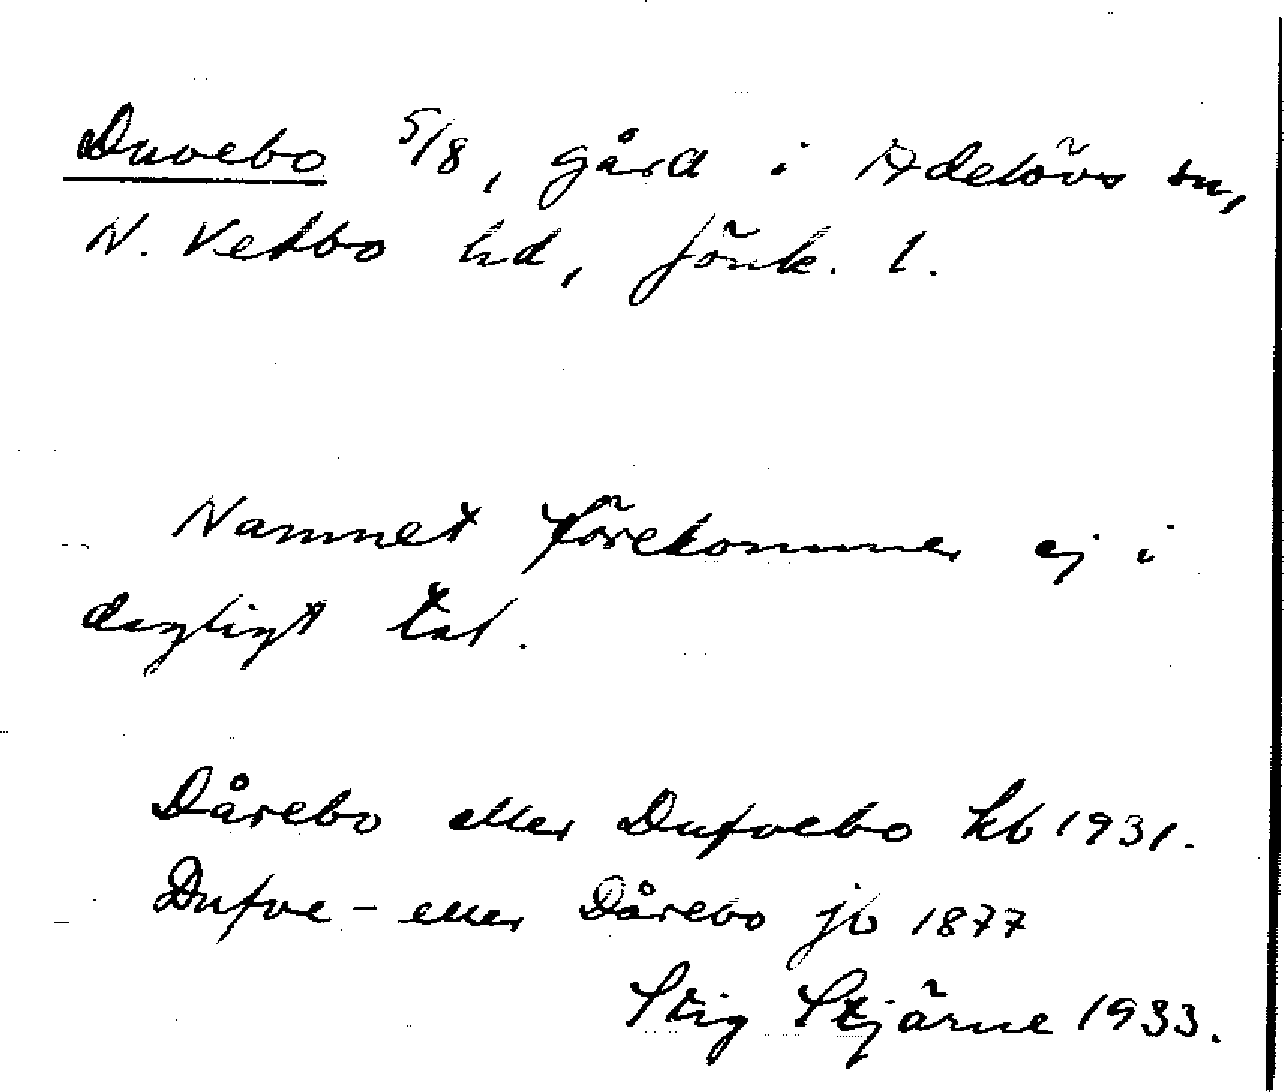 Duvebo 5/8, gård i Adelövs sn,
N. Vedbo hd, Jönk. l.
Namnet förekommer ej i
dagligt tal.
Dårebo eller Dufvebo kb 1931.
Dufve- eller Dårebo jb 1877
Stig Stjärne 1933.